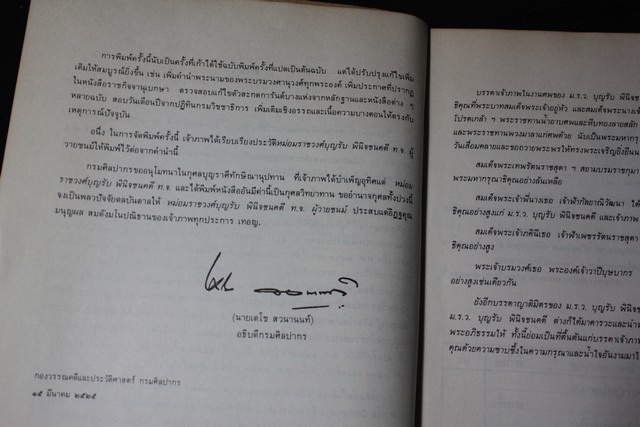 การพิมพ์ครั้งนี้นับเป็นครั้งที่เก้าได้ใช้ฉบับพิมพ์ครั้งที่แปดเป็นต้นฉบับ แต่ได้ปรับปรุงแก้ไขเพิ่ม
เติมให้สมบูรณ์ยิ่งขึ้น เช่น เพิ่มคำนำพระนามของพระบรมวงศานุวงศ์ทุกพระองค์ เพิ่มประกาศที่ปรากฏ
ในหนังสือราชกิจจานุเบกษา ตรวจสอบแก้ไขตัวสะกดการันต์บางแห่งจากหลักฐานและหนังสือต่าง ๆ
หลายฉบับ สอบวันเดือนปีจากปฏิทินกรมวิชชาธิการ เพิ่มเติมเชิงอรรถและเนื้อความบางตอนให้ตรงกับ
เหตุการณ์ปัจจุบัน
อนึ่ง ในการจัดพิมพ์ครั้งนี้ เจ้าภาพได้เรียบเรียงประวัติหม่อมราชวงศ์บุญรับ พินิจชนคดี ท.จ. ผู้
วายชนม์ให้พิมพ์ไว้ต่อจากคำนำนี้
กรมศิลปากรขออนุโมทนาในกุศลบุญราศีทักษิณานุปทาน ที่เจ้าภาพได้บำเพ็ญอุทิศแด่ หม่อม
ราชวงศ์บุญรับ พินิจชนคดี ท.จ. และได้พิมพ์หนังสืออันมีค่านี้เป็นกุศลวิทยาทาน ขออำนาจกุศลทั้งปวงนี้
จงเป็นพลวปัจจัยดลบันดาลให้ หม่อมราชวงศ์บุญรับ พินิจชนคดี ท.จ. ผู้วายชนม์ ประสบแต่อิฏฐคุณ
มนุญผล สมดังมโนปณิธานของเจ้าภาพทุกประการ เทอญ.
(นายเดโช สวนานนท์)
อธิบดีกรมศิลปากร
กองวรรณคดีและประวัติศาสตร์ กรมศิลปากร
๑๕ มีนาคม ๒๕๒๕
บรรดาเจ้าภาพในงานศพของ ม.ร.ว. บุญรับ พินิจ
ธิคุณที่พระบาทสมเด็จพระเจ้าอยู่หัว และสมเด็จพระนางเจ้า
โปรดเกล้า ฯ พระราชทานน้ำอาบศพและหีบทองลายสลัก
และพระราชทานพวงมาลาแก่ศพด้วย นับเป็นพระมหากรุ
วันเสื่อมคลายและขอถวายพระพรให้ทรงพระเจริญยิ่งยืน
สมเด็จพระเทพรัตนราชสุดา ฯ สยามบรมราชกุมา
พระมหากรุณาธิคุณอย่างล้นเหลือ
สมเด็จพระเจ้าพี่นางเธอ เจ้าฟ้ากัลยาณิวัฒนา ได้
ธิคุณอย่างสูงแก่ ม.ร.ว. บุญรับ พินิจชนคดี และเจ้าภาพ
สมเด็จพระเจ้าภคินีเธอ เจ้าฟ้าเพชรรัตนราชสุดา
ธิคุณอย่างสูง
พระเจ้าบรมวงศ์เธอ พระองค์เจ้าวาปีบุษบากร
อย่างสูงเช่นเดียวกัน
ยังอีกบรรดาญาติมิตรของ ม.ร.ว. บุญรับ พินิจ
ม.ร.ว. บุญรับ พินิจชนคดี ต่างก็ได้มาคารวะและนำ
พระอภิธรรมให้ ทั้งนี้ย่อมเป็นที่ตื้นตันแก่บรรดาเจ้าภาพ
คุณด้วยความซาบซึ้งในความกรุณาและน้ำใจอันงามมาใ